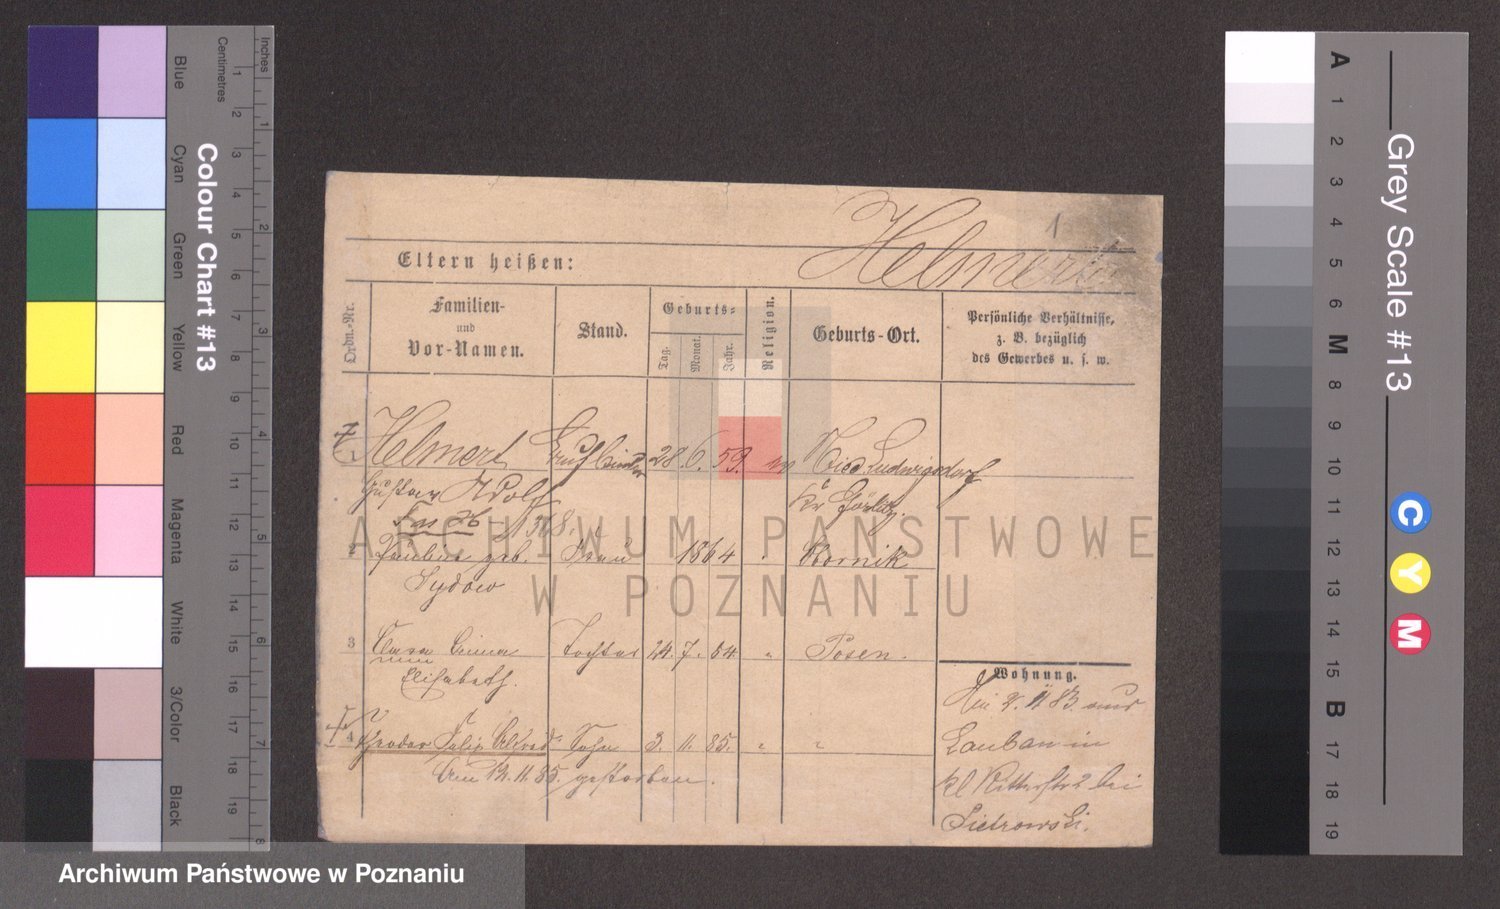 Inches
Centimetres
Colour Chart #13
Blue
Cyan
Green
Yellow
Red
Magenta
White
3/Color
Black
1
Helmert
Eltern heißen:
Ordn.-Nr.
Familien-
und
Vor-Namen.
Stand.
Geburts-
Tag.
Monat.
Jahr.
Religion.
Geburts-Ort.
Persönliche Verhältnisse,
z. B. bezüglich
des Gewerbes u. s. w.
Helmert Buchbinder 28. 6. 59. Ludwigsdorf
Gustav Adolf Kr Görlitz.
2 geb. Frau 1864 Kornik
Sydow
3 Clara Emma Tochter 24. 7. 84. " Posen.
Elisabeth.
4 Felix Alfred Sohn 3. 11. 85. " "
Am 12. 11. 85. gestorben.
Wohnung.
83 aus
Lauban in
kl Ritterstr 2 bei
Pietrowski.
ARCHIWUM PAŃSTWOWE
W POZNANIU
Grey Scale #13
A 1 2 3 4 5 6 M 8 9 10 11 12 13 14 15 B 17 18 19
C
Y
M
Archiwum Państwowe w Poznaniu